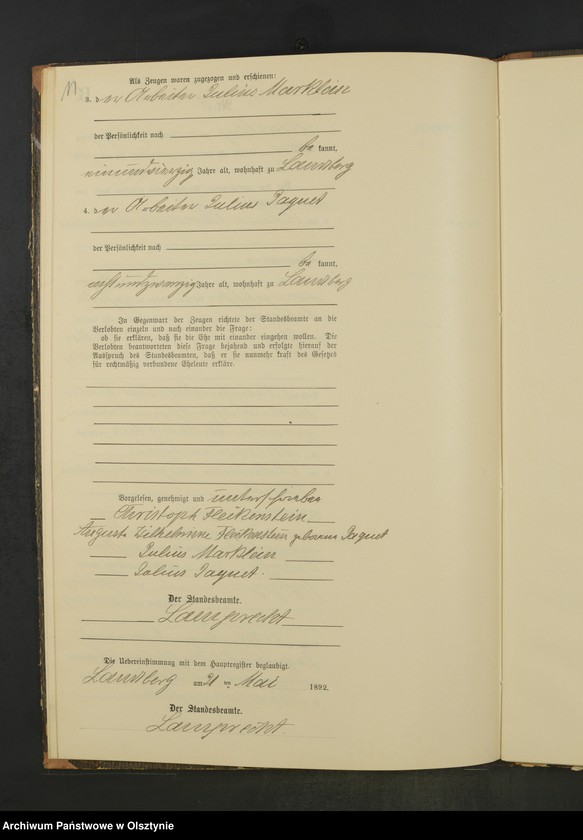 Als Zeugen waren zugezogen und erschienen:
3. der Arbeiter Julius Marklein
der Persönlichkeit nach
be kannt,
einundvierzig Jahre alt, wohnhaft zu Landsberg
4. der Arbeiter Julius Paquet
der Persönlichkeit nach
be kannt,
achtundzwanzig Jahre alt, wohnhaft zu Landsberg
In Gegenwart der Zeugen richtete der Standesbeamte an die
Verlobten einzeln und nach einander die Frage:
ob sie erklären, daß sie die Ehe mit einander eingehen wollen. Die
Verlobten beantworteten diese Frage bejahend und erfolgte hierauf der
Ausspruch des Standesbeamten, daß er sie nunmehr kraft des Gesetzes
für rechtmäßig verbundene Eheleute erkläre.
Vorgelesen, genehmigt und unterschrieben
Christoph Fleckenstein
Auguste Wilhelmine Fleckenstein geborene Paquet
Julius Marklein
Julius Paquet.
Der Standesbeamte.
Lamprecht
Die Uebereinstimmung mit dem Hauptregister beglaubigt.
Landsberg am 21 ten Mai 1892.
Der Standesbeamte.
Lamprecht.
Archiwum Państwowe w Olsztynie